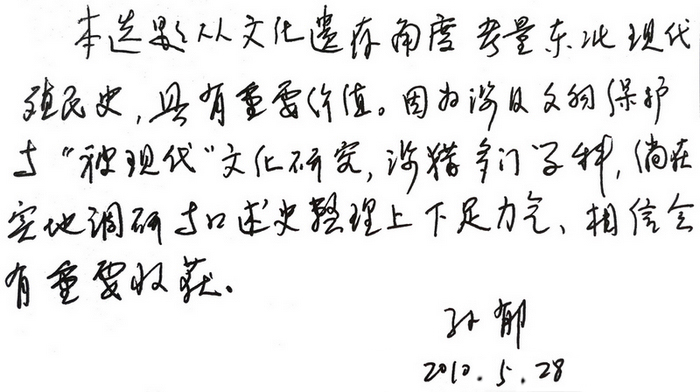 本选题从文化遗存角度考量东北现代
殖民史，具有重要价值。因为涉及文物保护
与“被现代”文化研究，涉猎多门学科，倘在
实地调研与口述史整理上下足力气、相信会
有重要收获。
孙郁
2010.5.28